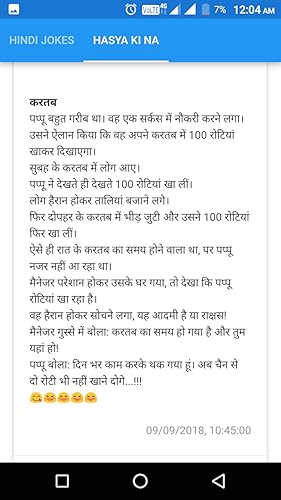 VoLTE 4G 7% 12:04 AM
HINDI JOKES HASYA KI NA
करतब
पप्पू बहुत गरीब था। वह एक सर्कस में नौकरी करने लगा।
उसने ऐलान किया कि वह अपने करतब में 100 रोटियां
खाकर दिखाएगा।
सुबह के करतब में लोग आए।
पप्पू ने देखते ही देखते 100 रोटियां खा लीं।
लोग हैरान होकर तालियां बजाने लगे।
फिर दोपहर के करतब में भीड़ जुटी और उसने 100 रोटियां
फिर खा लीं।
ऐसे ही रात के करतब का समय होने वाला था, पर पप्पू
नजर नहीं आ रहा था।
मैनेजर परेशान होकर उसके घर गया, तो देखा कि पप्पू
रोटियां खा रहा है।
वह हैरान होकर सोचने लगा, यह आदमी है या राक्षस!
मैनेजर गुस्से में बोला: करतब का समय हो गया है और तुम
यहां हो!
पप्पू बोला: दिन भर काम करके थक गया हूं। अब चैन से
दो रोटी भी नहीं खाने दोगे...!!!
😋😄😄😄😄
09/09/2018, 10:45:00